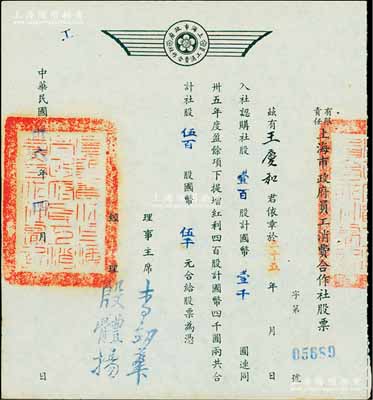 有限
責任
上海市政府員工消費合作社股票
字第 05689 號
茲有王慶和君依章於 五年 月 日
入社認購社股壹百股計國幣壹千圓連同
卅五年度盈餘項下提增紅利四百股計國幣四千圓兩共合
計社股伍百股國幣伍千元合給股票為憑
理事主席
經理
殷體揚
中華民國卅六年四月 日